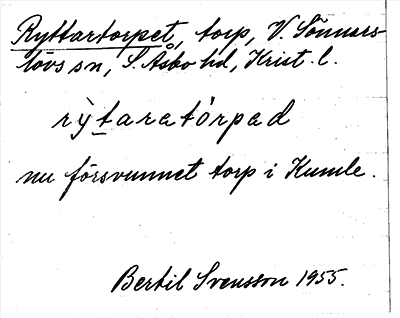 Ryttartorpet, torp, V. Sönnars-
lövs sn, S. Åsbo hd, Krist. l.
rỳtaratórpad
nu försvunnet torp i Kumle.
Bertil Svensson 1955.